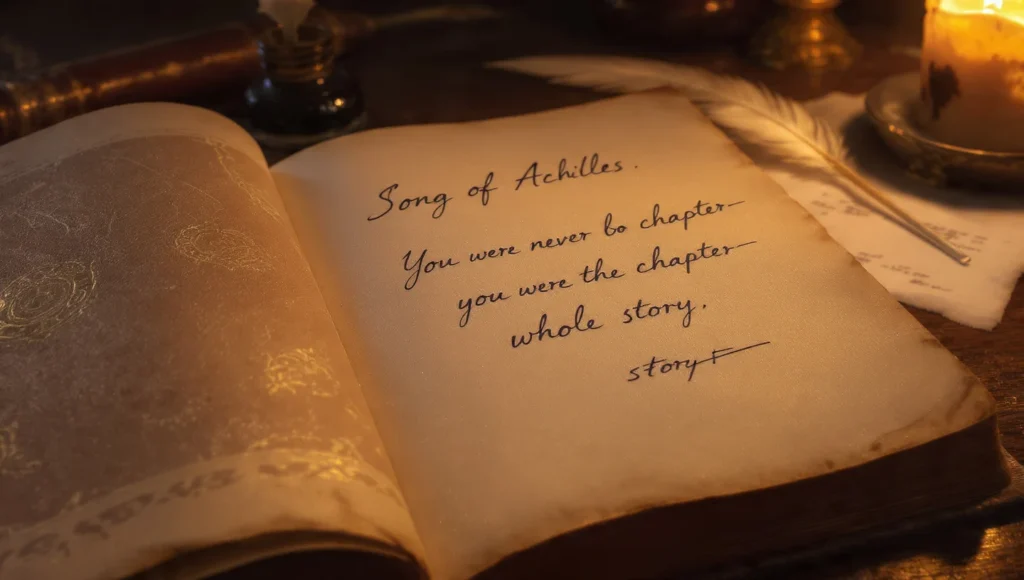 Song of Achilles.
You were never bo chapter—
you were the chapter—
whole story.
story